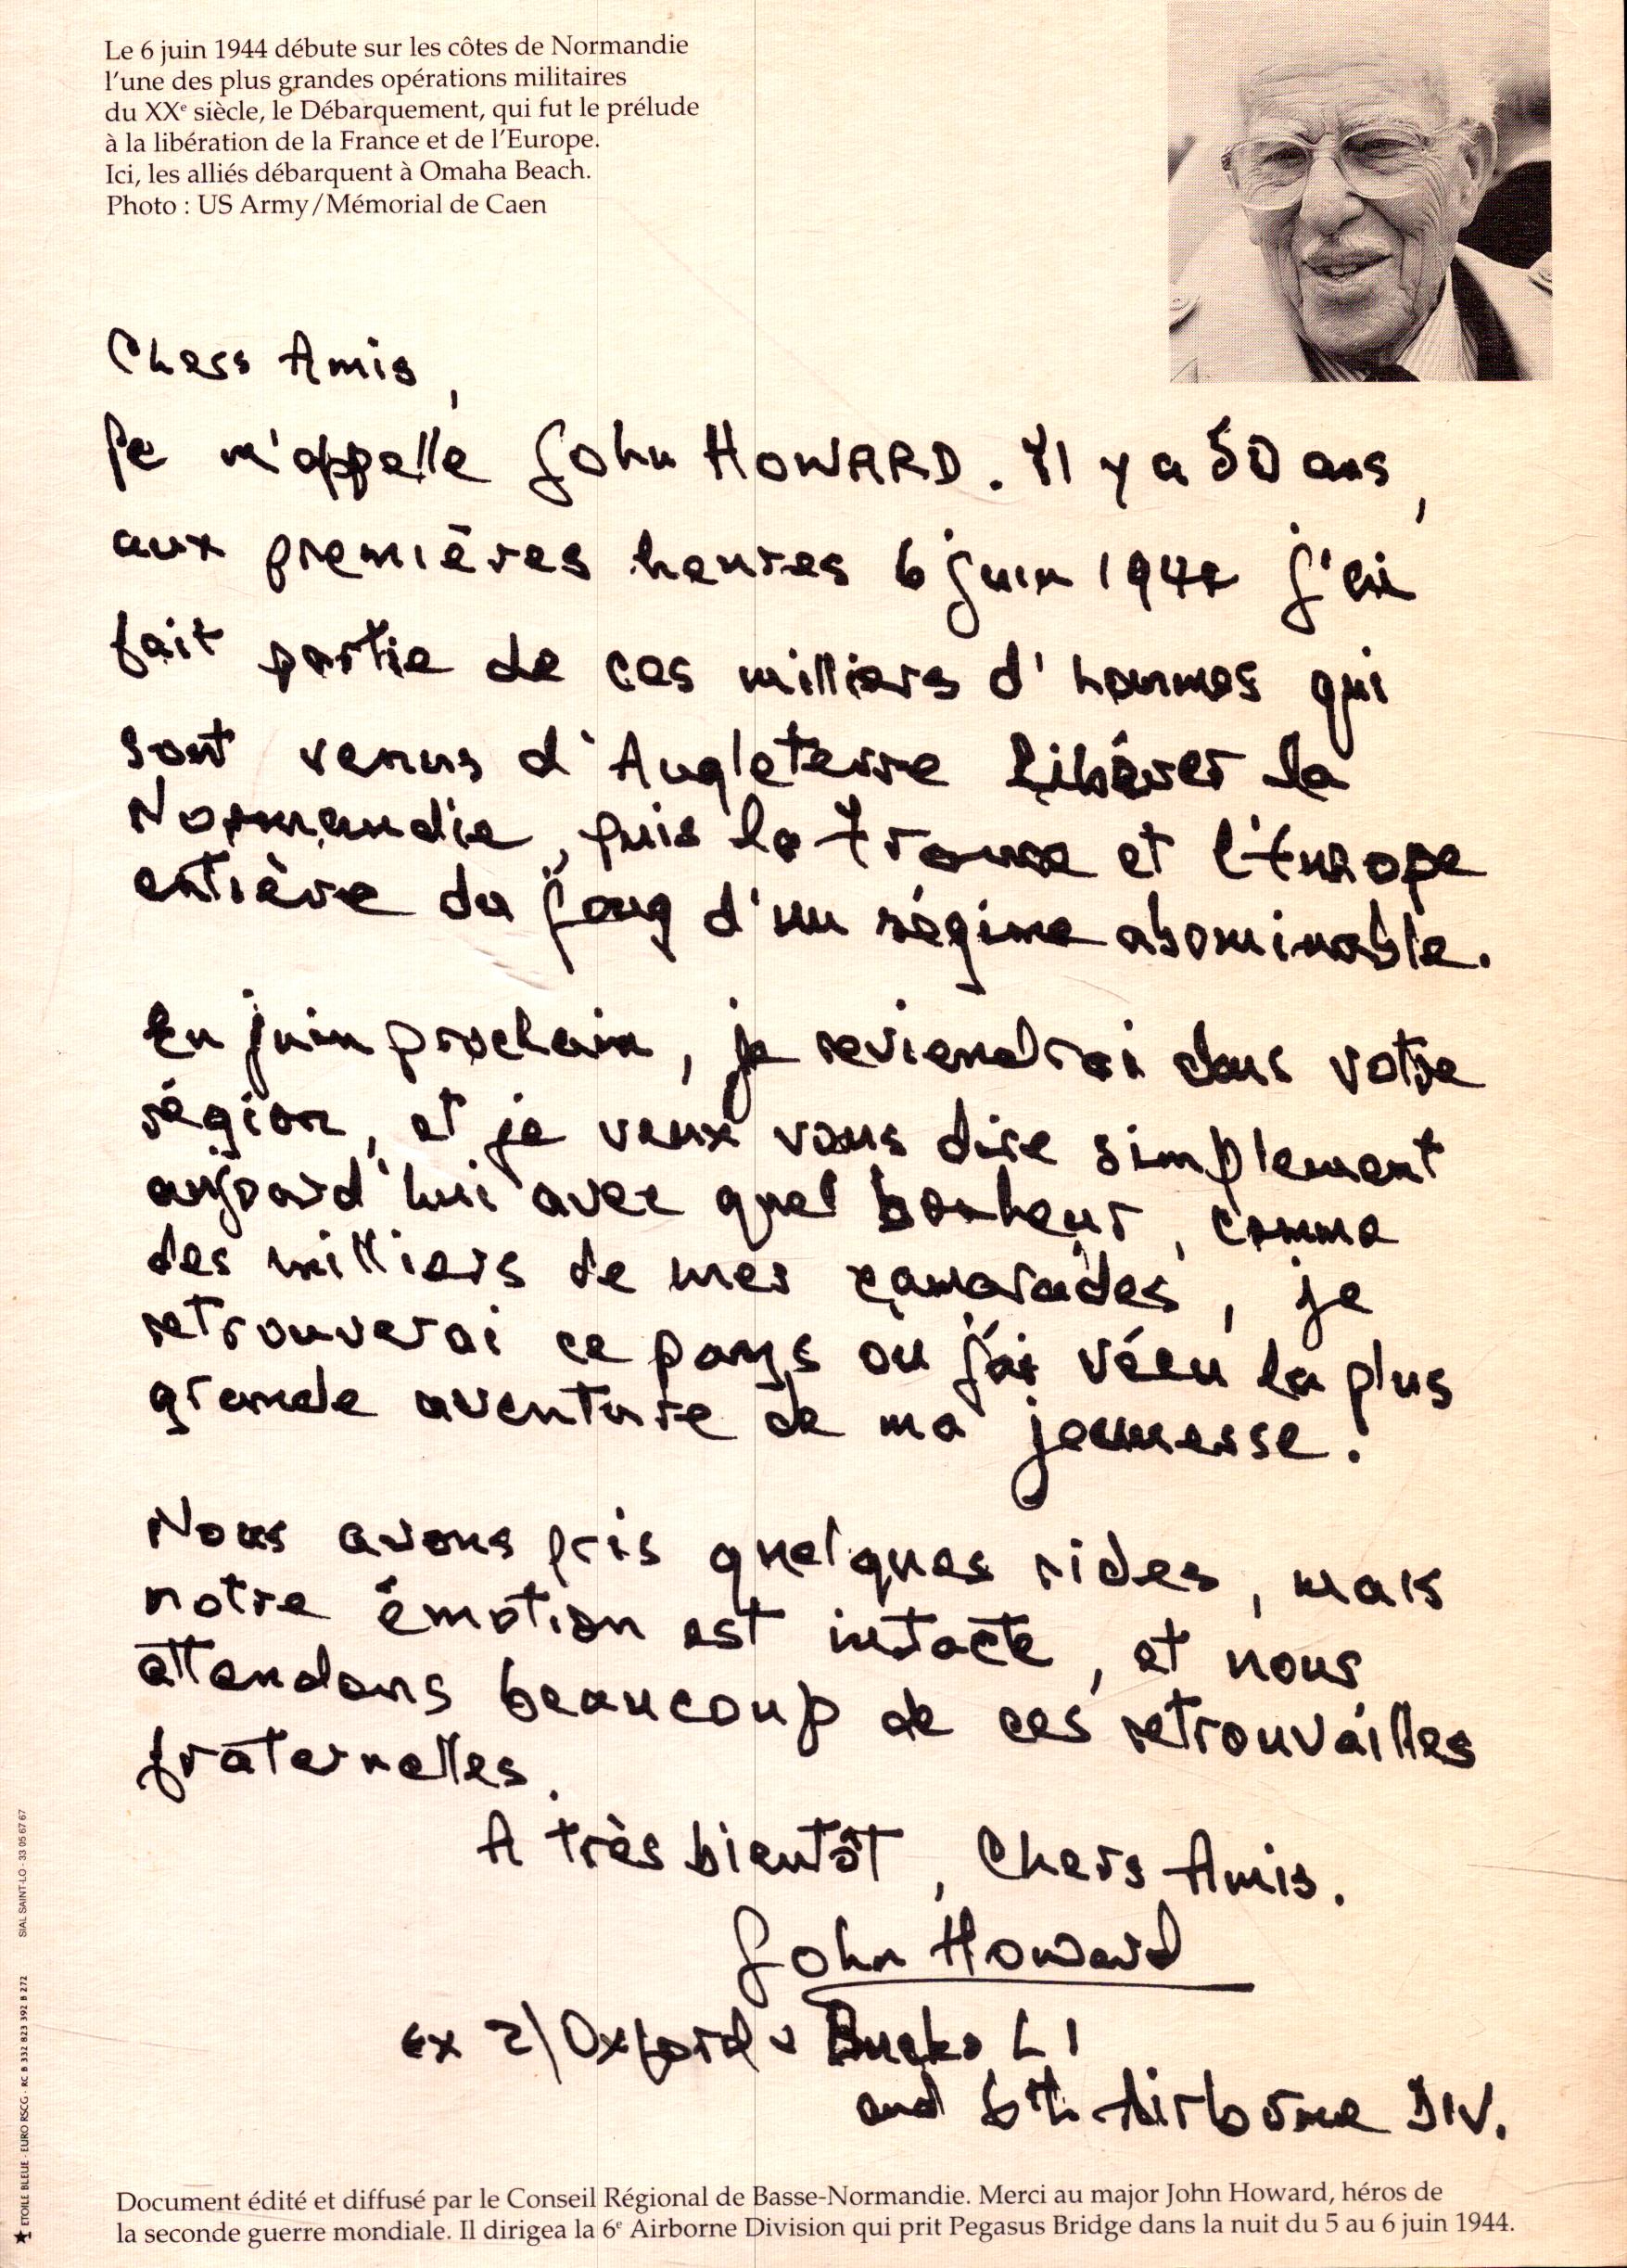 Le 6 juin 1944 débute sur les côtes de Normandie
l'une des plus grandes opérations militaires
du XXe siècle, le Débarquement, qui fut le prélude
à la libération de la France et de l'Europe.
Ici, les alliés débarquent à Omaha Beach.
Photo : US Army/Mémorial de Caen
Chers Amis,
Je m'appelle John HOWARD. Il y a 50 ans,
aux premières heures 6 juin 1944 j'ai
fait partie de ces milliers d'hommes qui
sont venus d'Angleterre libérer la
Normandie, puis la France et l'Europe
entière du joug d'un régime abominable.
En juin prochain, je reviendrai dans votre
région, et je veux vous dire simplement
aujourd'hui avec quel bonheur, comme
des milliers de mes camarades, je
retrouverai ce pays où j'ai vécu la plus
grande aventure de ma jeunesse.
Nous avons pris quelques rides, mais
notre émotion est intacte, et nous
attendons beaucoup de ces retrouvailles
fraternelles.
A très bientôt, Chers Amis.
John Howard
ex 2/Oxford & Bucks L I
and 6th Airborne DIV.
Document édité et diffusé par le Conseil Régional de Basse-Normandie. Merci au major John Howard, héros de
la seconde guerre mondiale. Il dirigea la 6e Airborne Division qui prit Pegasus Bridge dans la nuit du 5 au 6 juin 1944.
ETOILE BLEUE - EURO RSCG - RC B 332 823 392 B 272 SIAL SAINT-LO - 33 05 67 67